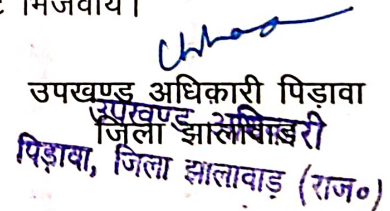 भिजवायें।
उपखण्ड अधिकारी पिड़ावा
जिला झालावाड़
उपखण्ड अधिकारी
पिड़ावा, जिला झालावाड़ (राज०)